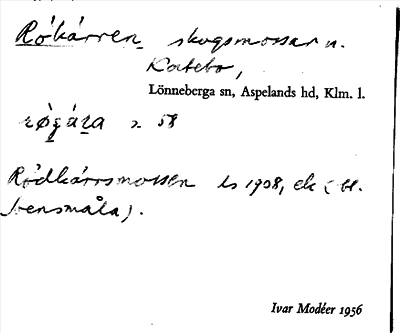 Rökärren, skogsmossar n.
Katebo,
Lönneberga sn, Aspelands hd, Klm. l.
2. 58
Rödkärrsmossen ls 1908, ek (bl.
Ivar Modéer 1956